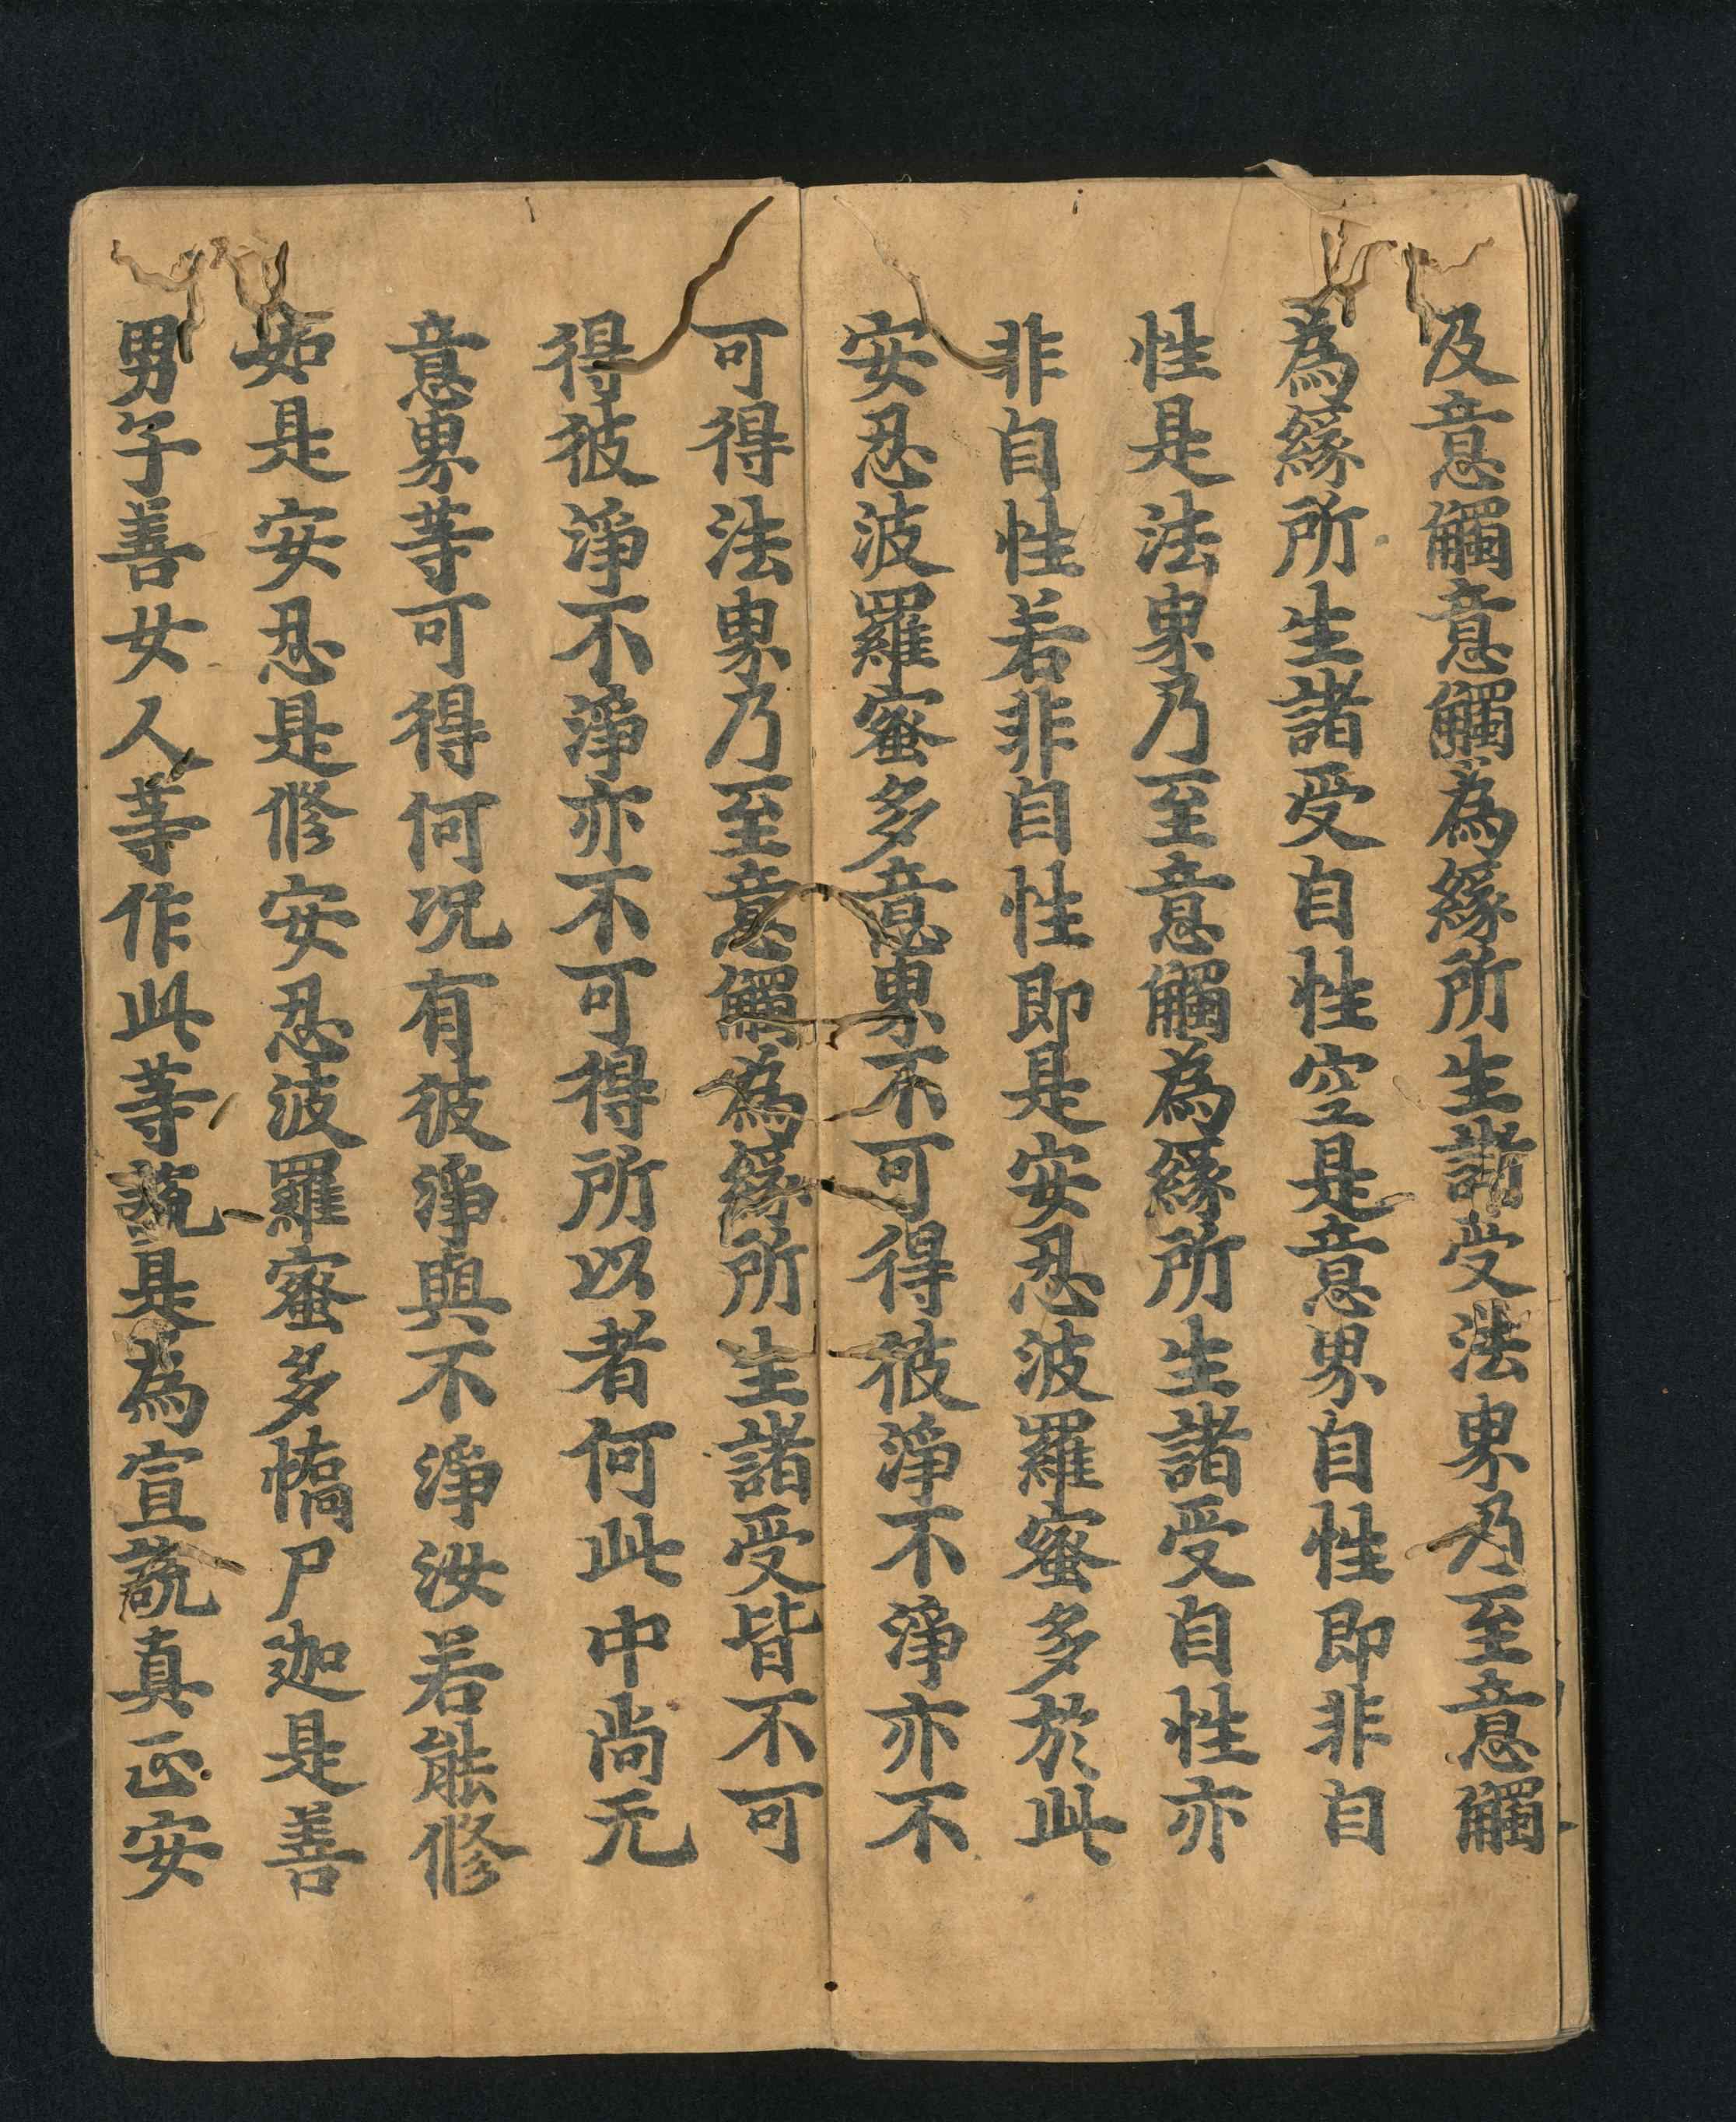 及意觸意觸為緣所生諸受法界乃至意觸
為緣所生諸受自性空是意界自性即非自
性是法界乃至意觸為緣所生諸受自性亦
非自性若非自性即是安忍波羅蜜多於此
安忍波羅蜜多意界不可得彼淨不淨亦不
可得法界乃至意觸為緣所生諸受皆不可
得彼淨不淨亦不可得所以者何此中尚无
意界等可得何況有彼淨與不淨汝若能修
如是安忍是修安忍波羅蜜多憍尸迦是善
男子善女人等作此等說是為宣說真正安